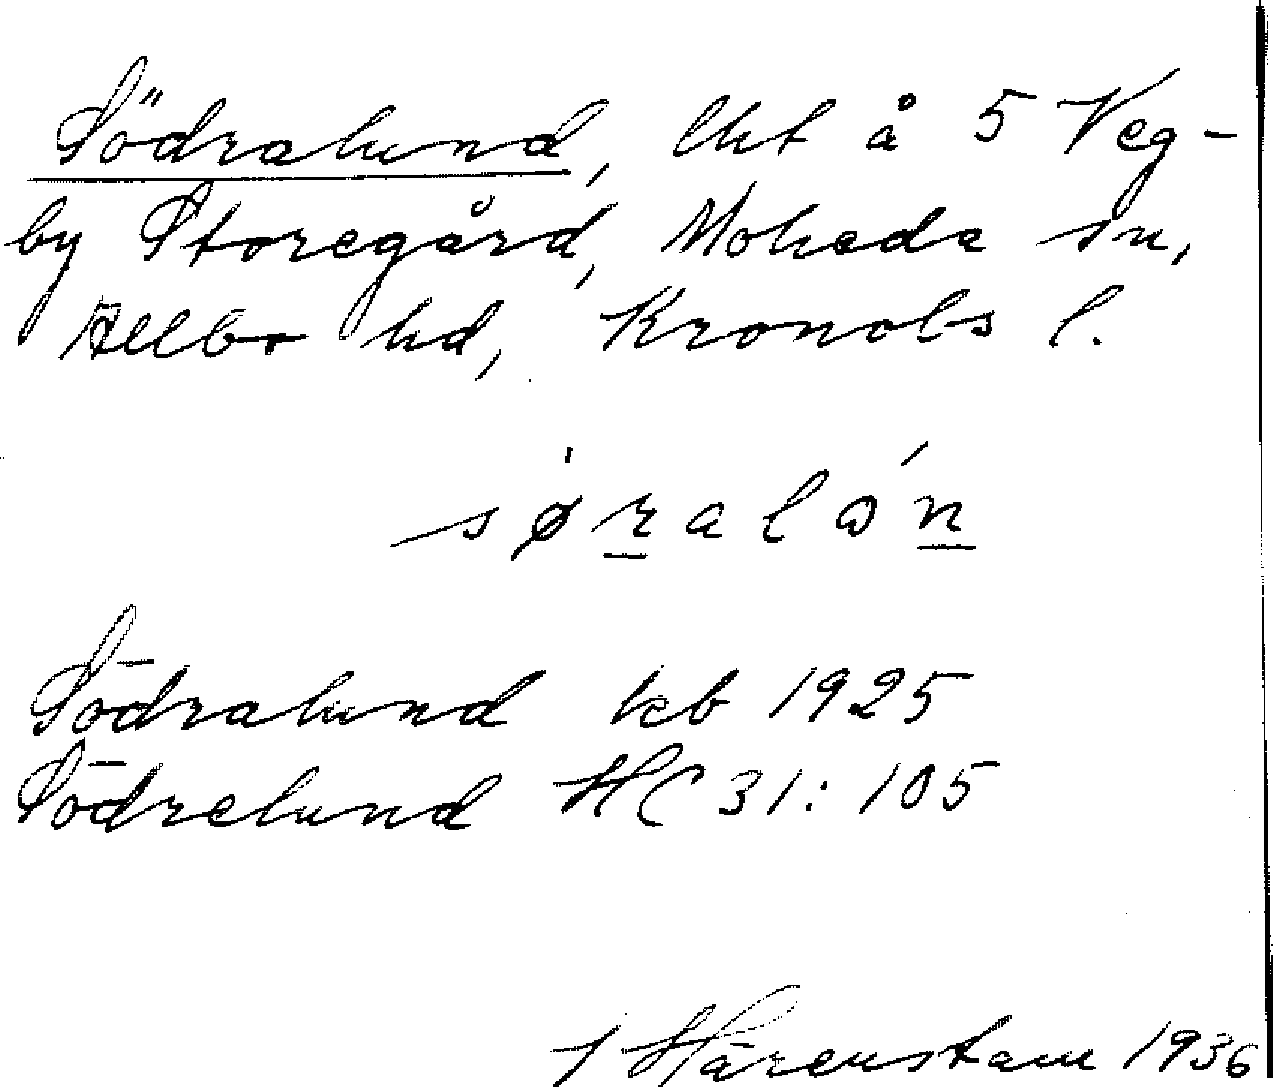 Södralund, lht å 5 Veg-
by Storegård, Moheda sn,
Allbo hd, Kronobs l.
sø̀ralón
Södralund kb 1925
Södrelund HC 31:105
J Härenstam 1936